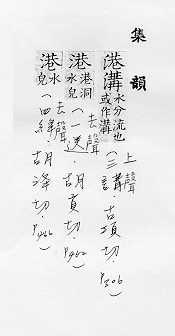 集韻
港溝水分流也或作溝(上聲三講.古項切.P306)
港港洞水皃(去聲一送.胡貢切.
港水皃(去聲四絳.胡降切.